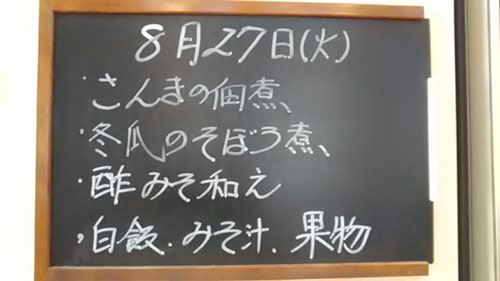 8月27日(火)
・さんまの佃煮、
・冬瓜のそぼろ煮、
・酢みそ和え
，白飯．みそ汁．果物